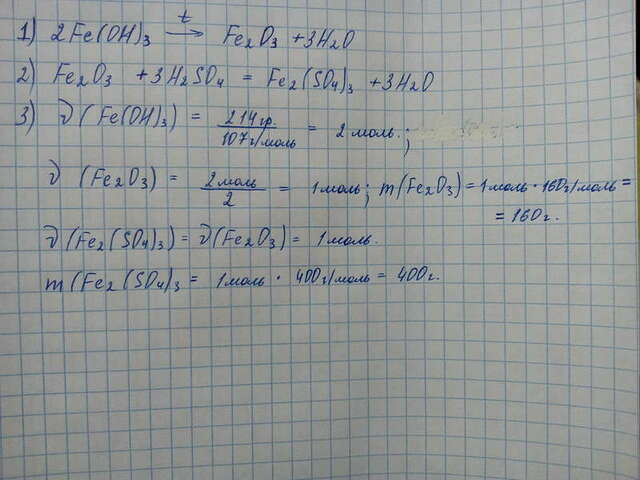 1) 2Fe(OH)₃ —t→ Fe₂O₃ + 3H₂O
2) Fe₂O₃ + 3H₂SO₄ = Fe₂(SO₄)₃ + 3H₂O
3) ν (Fe(OH)₃) = 214гр. / 107г/моль = 2 моль. ;
ν (Fe₂O₃) = 2 моль / 2 = 1 моль; m(Fe₂O₃) = 1 моль · 160г/моль =
= 160г.
ν(Fe₂(SO₄)₃) = ν(Fe₂O₃) = 1 моль.
m(Fe₂(SO₄)₃ = 1 моль · 400г/моль = 400г.